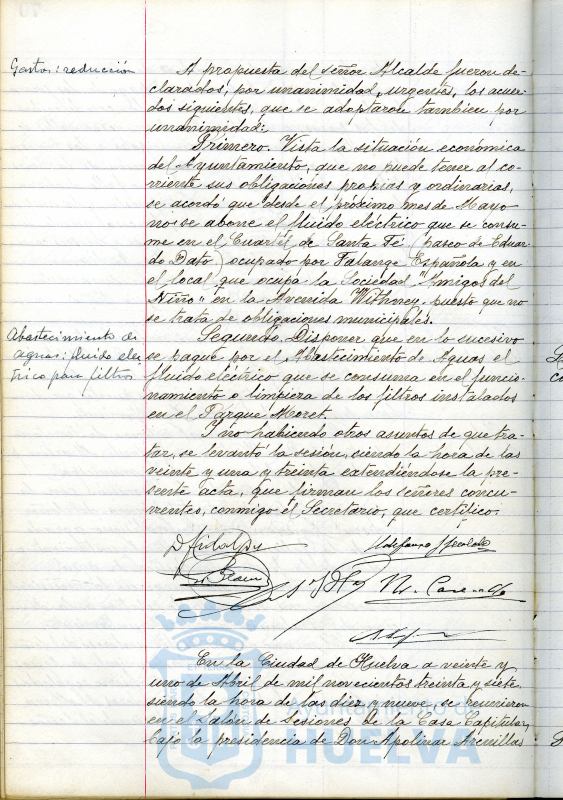 Gastos: reducción
A propuesta del señor Alcalde fueron de-
clarados, por unanimidad, urgentes, los acuer-
dos siguientes, que se adoptaron tambien por
unanimidad:
Primero. Vista la situación económica
del Ayuntamiento, que no puede tener al co-
rriente sus obligaciones propias y ordinarias,
se acordó que desde el próximo mes de Mayo
no se abone el fluido eléctrico que se consu-
me en el Cuartel de Santa Fé (paseo de Eduar-
do Dato) ocupado por Falange Española y en
el local que ocupa la Sociedad "Amigos del
Niño" en la Avenida Withney, puesto que no
se trata de obligaciones municipales.
Abastecimiento de
aguas: fluido eléc-
trico para filtros
Segundo. Disponer que en lo sucesivo
se pague por el Abastecimiento de Aguas el
fluido eléctrico que se consuma en el funcio-
namiento o limpieza de los filtros instalados
en el Parque Moret.
Y no habiendo otros asuntos de que tra-
tar, se levantó la sesión, siendo la hora de las
veinte y una y treinta extendiéndose la pre-
sente acta, que firman los señores concu-
rrentes, conmigo el Secretario, que certifico.
En la Ciudad de Huelva a veinte y
uno de Abril de mil novecientos treinta y siete,
siendo la hora de las diez y nueve, se reunieron
en el Salón de Sesiones de la Casa Capitular,
bajo la presidencia de Don Apolinar Arenillas
HUELVA